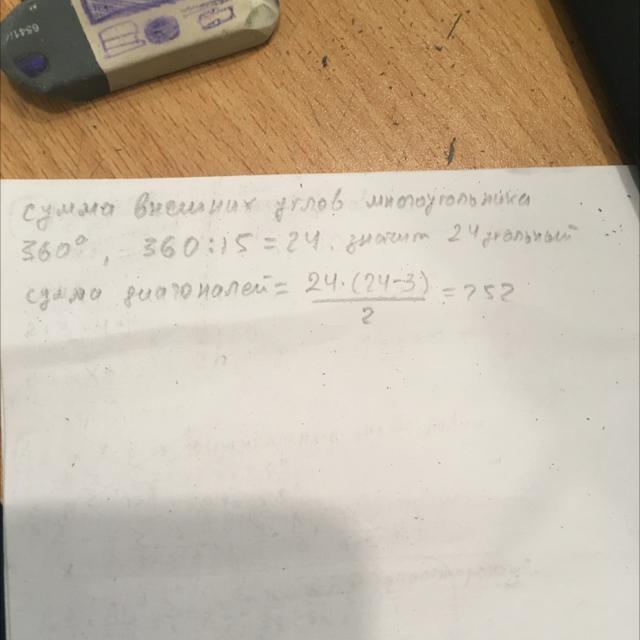 сумма внешних углов многоугольника
360°, 360:15=24. значит 24 угольный
сумма диагоналей = 24·(24-3) / 2 = 252